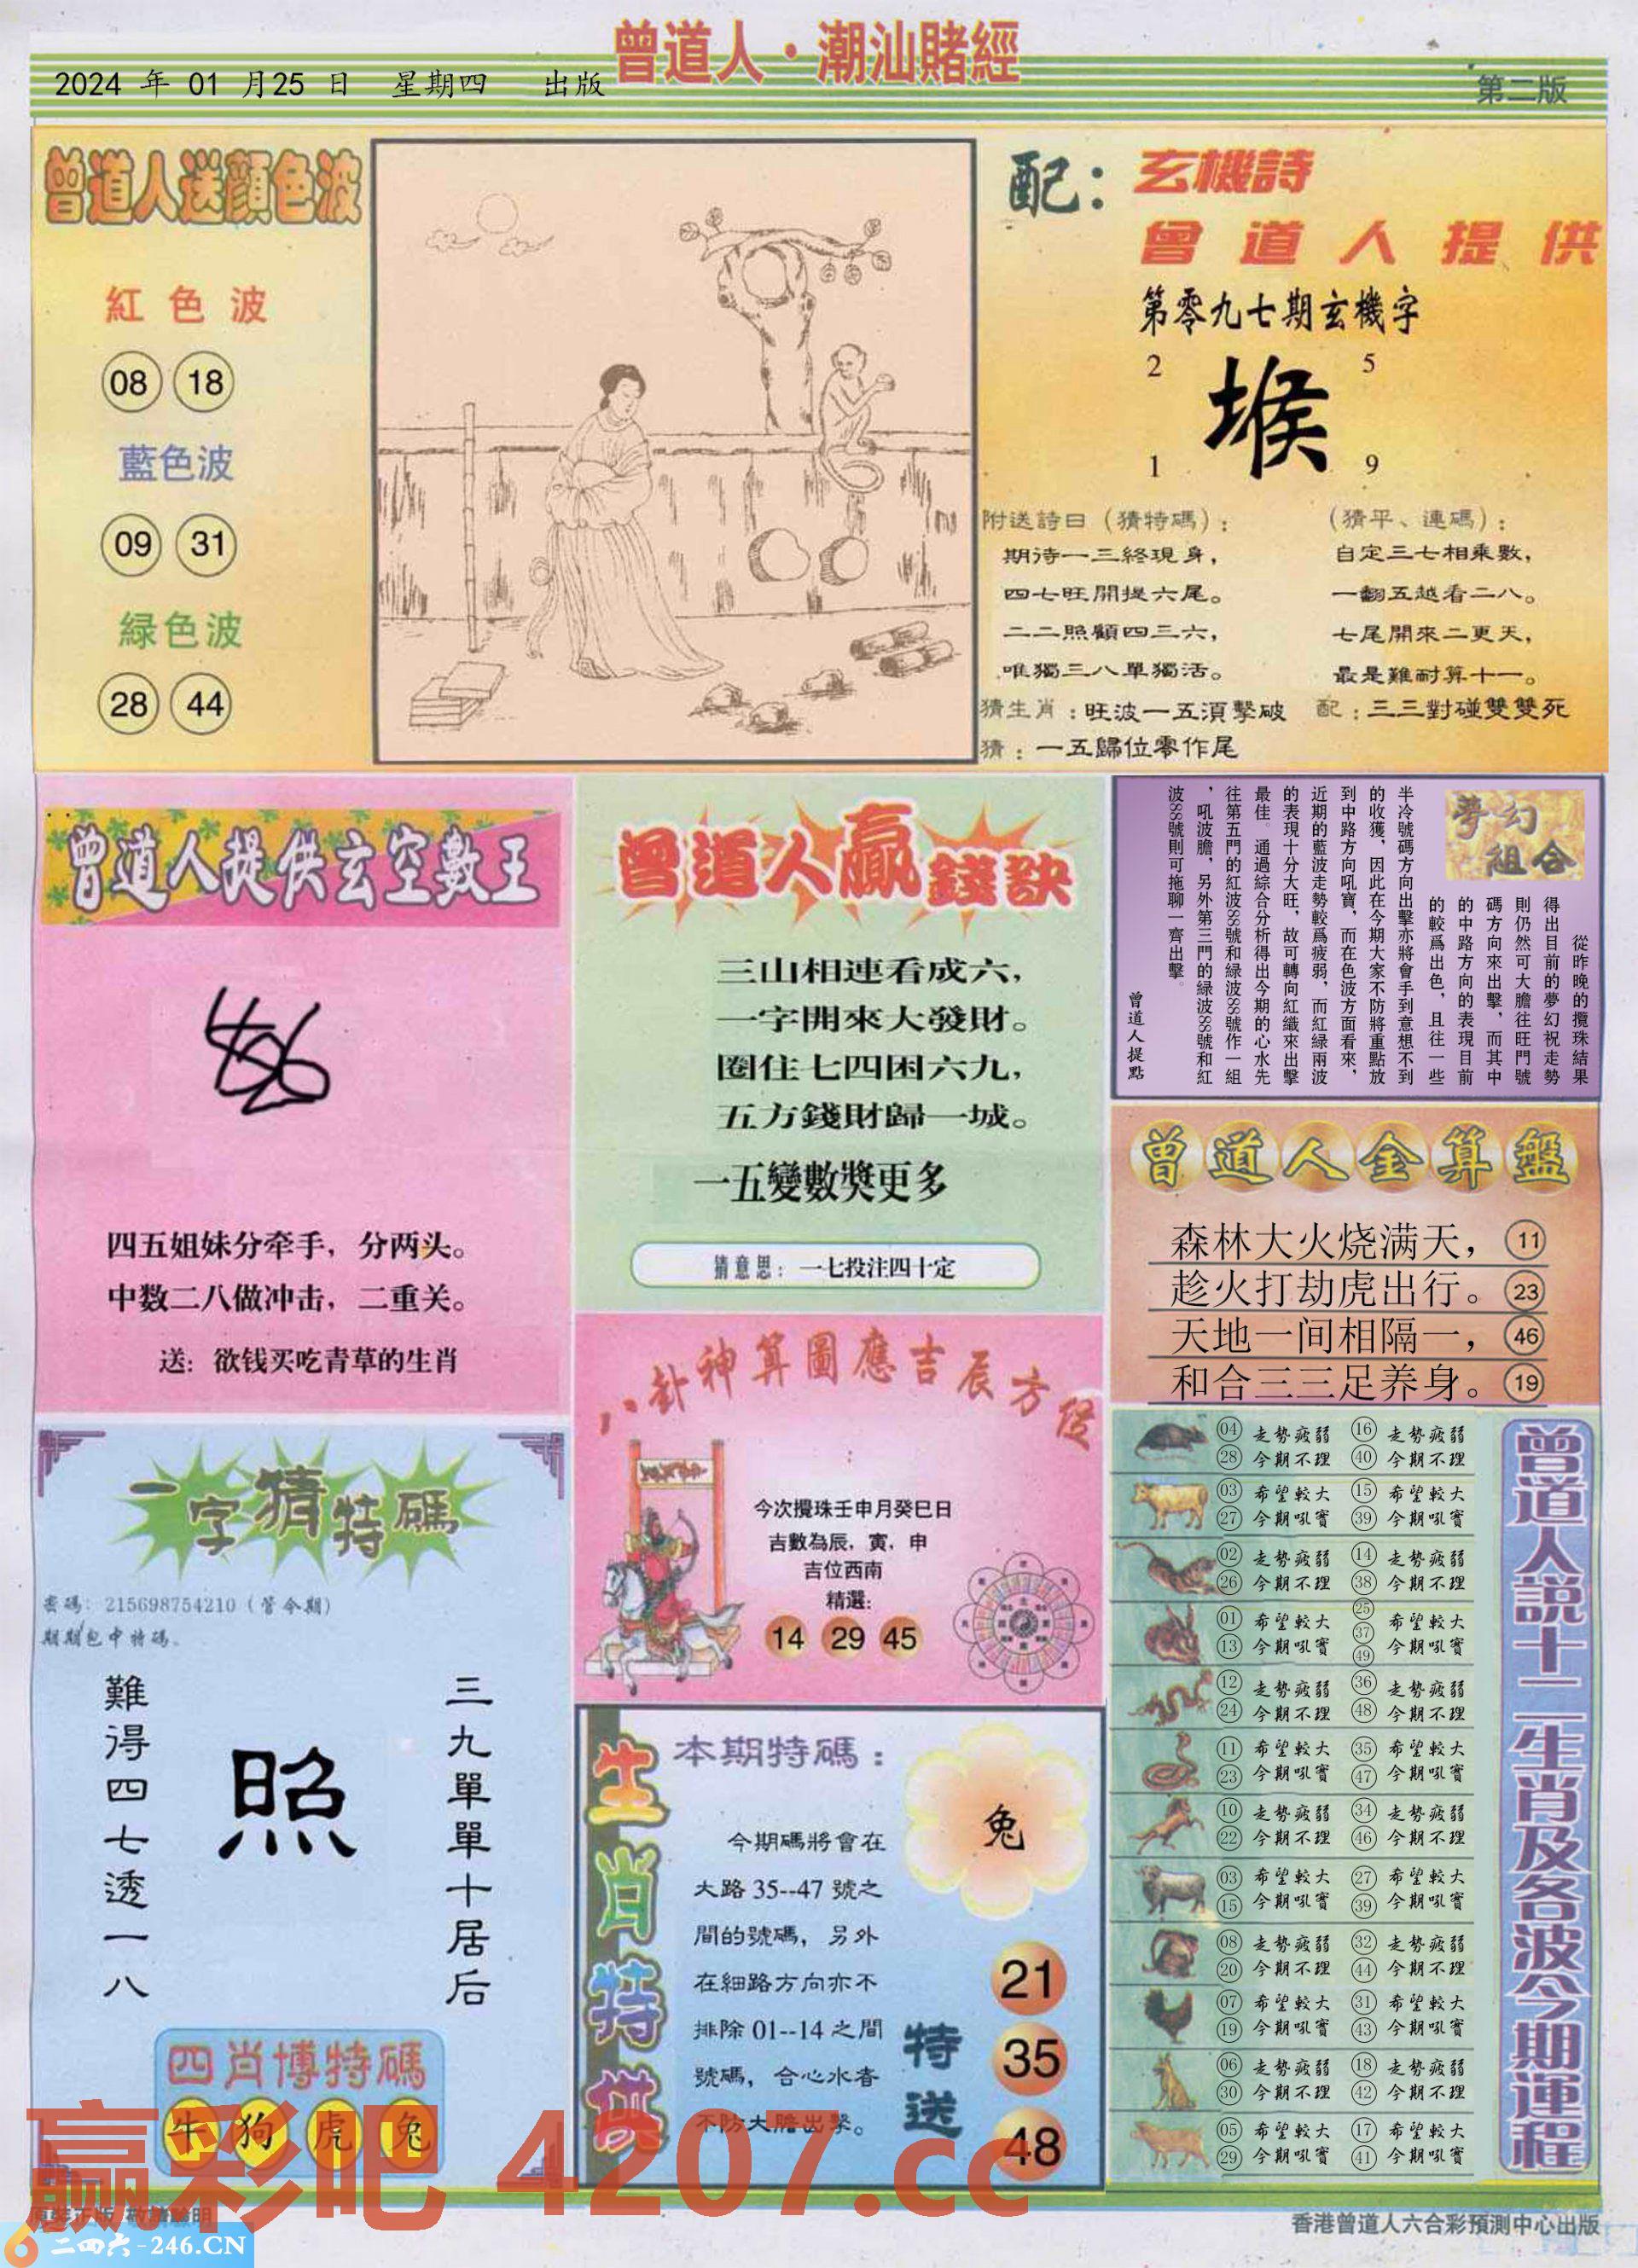 曾道人·潮汕賭經
2024 年 01 月25 日 星期四 出版
第二版
曾道人送顔色波
紅色波
08 18
藍色波
09 31
緑色波
28 44
配：
玄機詩
曾道人提供
第零九七期玄機字
2 5
堠
1 9
附送詩曰（猜特碼）：
期待一三終現身，
四七旺開提六尾。
二二照顧四三六，
唯獨三八單獨活。
（猜平、連碼）：
自定三七相乘數，
一翻五越看二八。
七尾開來二更天，
最是難耐算十一。
猜生肖：旺波一五須擊破
配：三三對碰雙雙死
猜：一五歸位零作尾
曾道人提供玄空數王
四五姐妹分牵手，分两头。
中数二八做冲击，二重关。
送：欲钱买吃青草的生肖
曾道人贏錢訣
三山相連看成六，
一字開來大發財。
圈住七四困六九，
五方錢財歸一城。
一五變數獎更多
猜意思：一七投注四十定
夢幻
組合
從昨晚的攪珠結果
得出目前的夢幻祝走勢
則仍然可大膽往旺門號
碼方向來出擊，而其中
的中路方向的表現目前
的較爲出色，且往一些
半冷號碼方向出擊亦將會手到意想不到
的收獲，因此在今期大家不防將重點放
到中路方向吼寶，而在色波方面看來，
近期的藍波走勢較爲疲弱，而紅緑兩波
的表現十分大旺，故可轉向紅織來出擊
最佳。通過綜合分析得出今期的心水先
往第五門的紅波88號和緑波88號作一組
，吼波膽，另外第三門的緑波88號和紅
波88號則可拖聊一齊出擊。
曾道人提點
曾道人金算盤
森林大火烧满天， 11
趁火打劫虎出行。 23
天地一间相隔一， 46
和合三三足养身。 19
八卦神算圖應吉辰方位
今次攪珠壬申月癸巳日
吉數為辰，寅，申
吉位西南
精選：
14 29 45
一字猜特碼
密碼：215698754210（管今期）
期期包中特碼。
三九單單十居后
照
難得四七透一八
四肖博特碼
牛 狗 虎 兔
生肖特供
本期特碼：
兔
今期碼將會在
大路35--47 號之
間的號碼，另外
在細路方向亦不
排除01--14之間
號碼，合心水者
不防大膽出擊。
特送
21
35
48
曾道人說十二生肖及各波今期運程
04 走勢疲弱 16 走勢疲弱
28 今期不理 40 今期不理
03 希望較大 15 希望較大
27 今期吼寶 39 今期吼寶
02 走勢疲弱 14 走勢疲弱
26 今期不理 38 今期不理
01 希望較大 25 37 49 希望較大
13 今期吼寶 今期吼寶
12 走勢疲弱 36 走勢疲弱
24 今期不理 48 今期不理
11 希望較大 35 希望較大
23 今期吼寶 47 今期吼寶
10 走勢疲弱 34 走勢疲弱
22 今期不理 46 今期不理
03 希望較大 27 希望較大
15 今期吼寶 39 今期吼寶
08 走勢疲弱 32 走勢疲弱
20 今期不理 44 今期不理
07 希望較大 31 希望較大
19 今期吼寶 43 今期吼寶
06 走勢疲弱 18 走勢疲弱
30 今期不理 42 今期不理
05 希望較大 17 希望較大
29 今期吼寶 41 今期吼寶
赢彩吧 4207.cc
原裝正版 敬請驗明
二四六-246.CN
香港曾道人六合彩預測中心出版